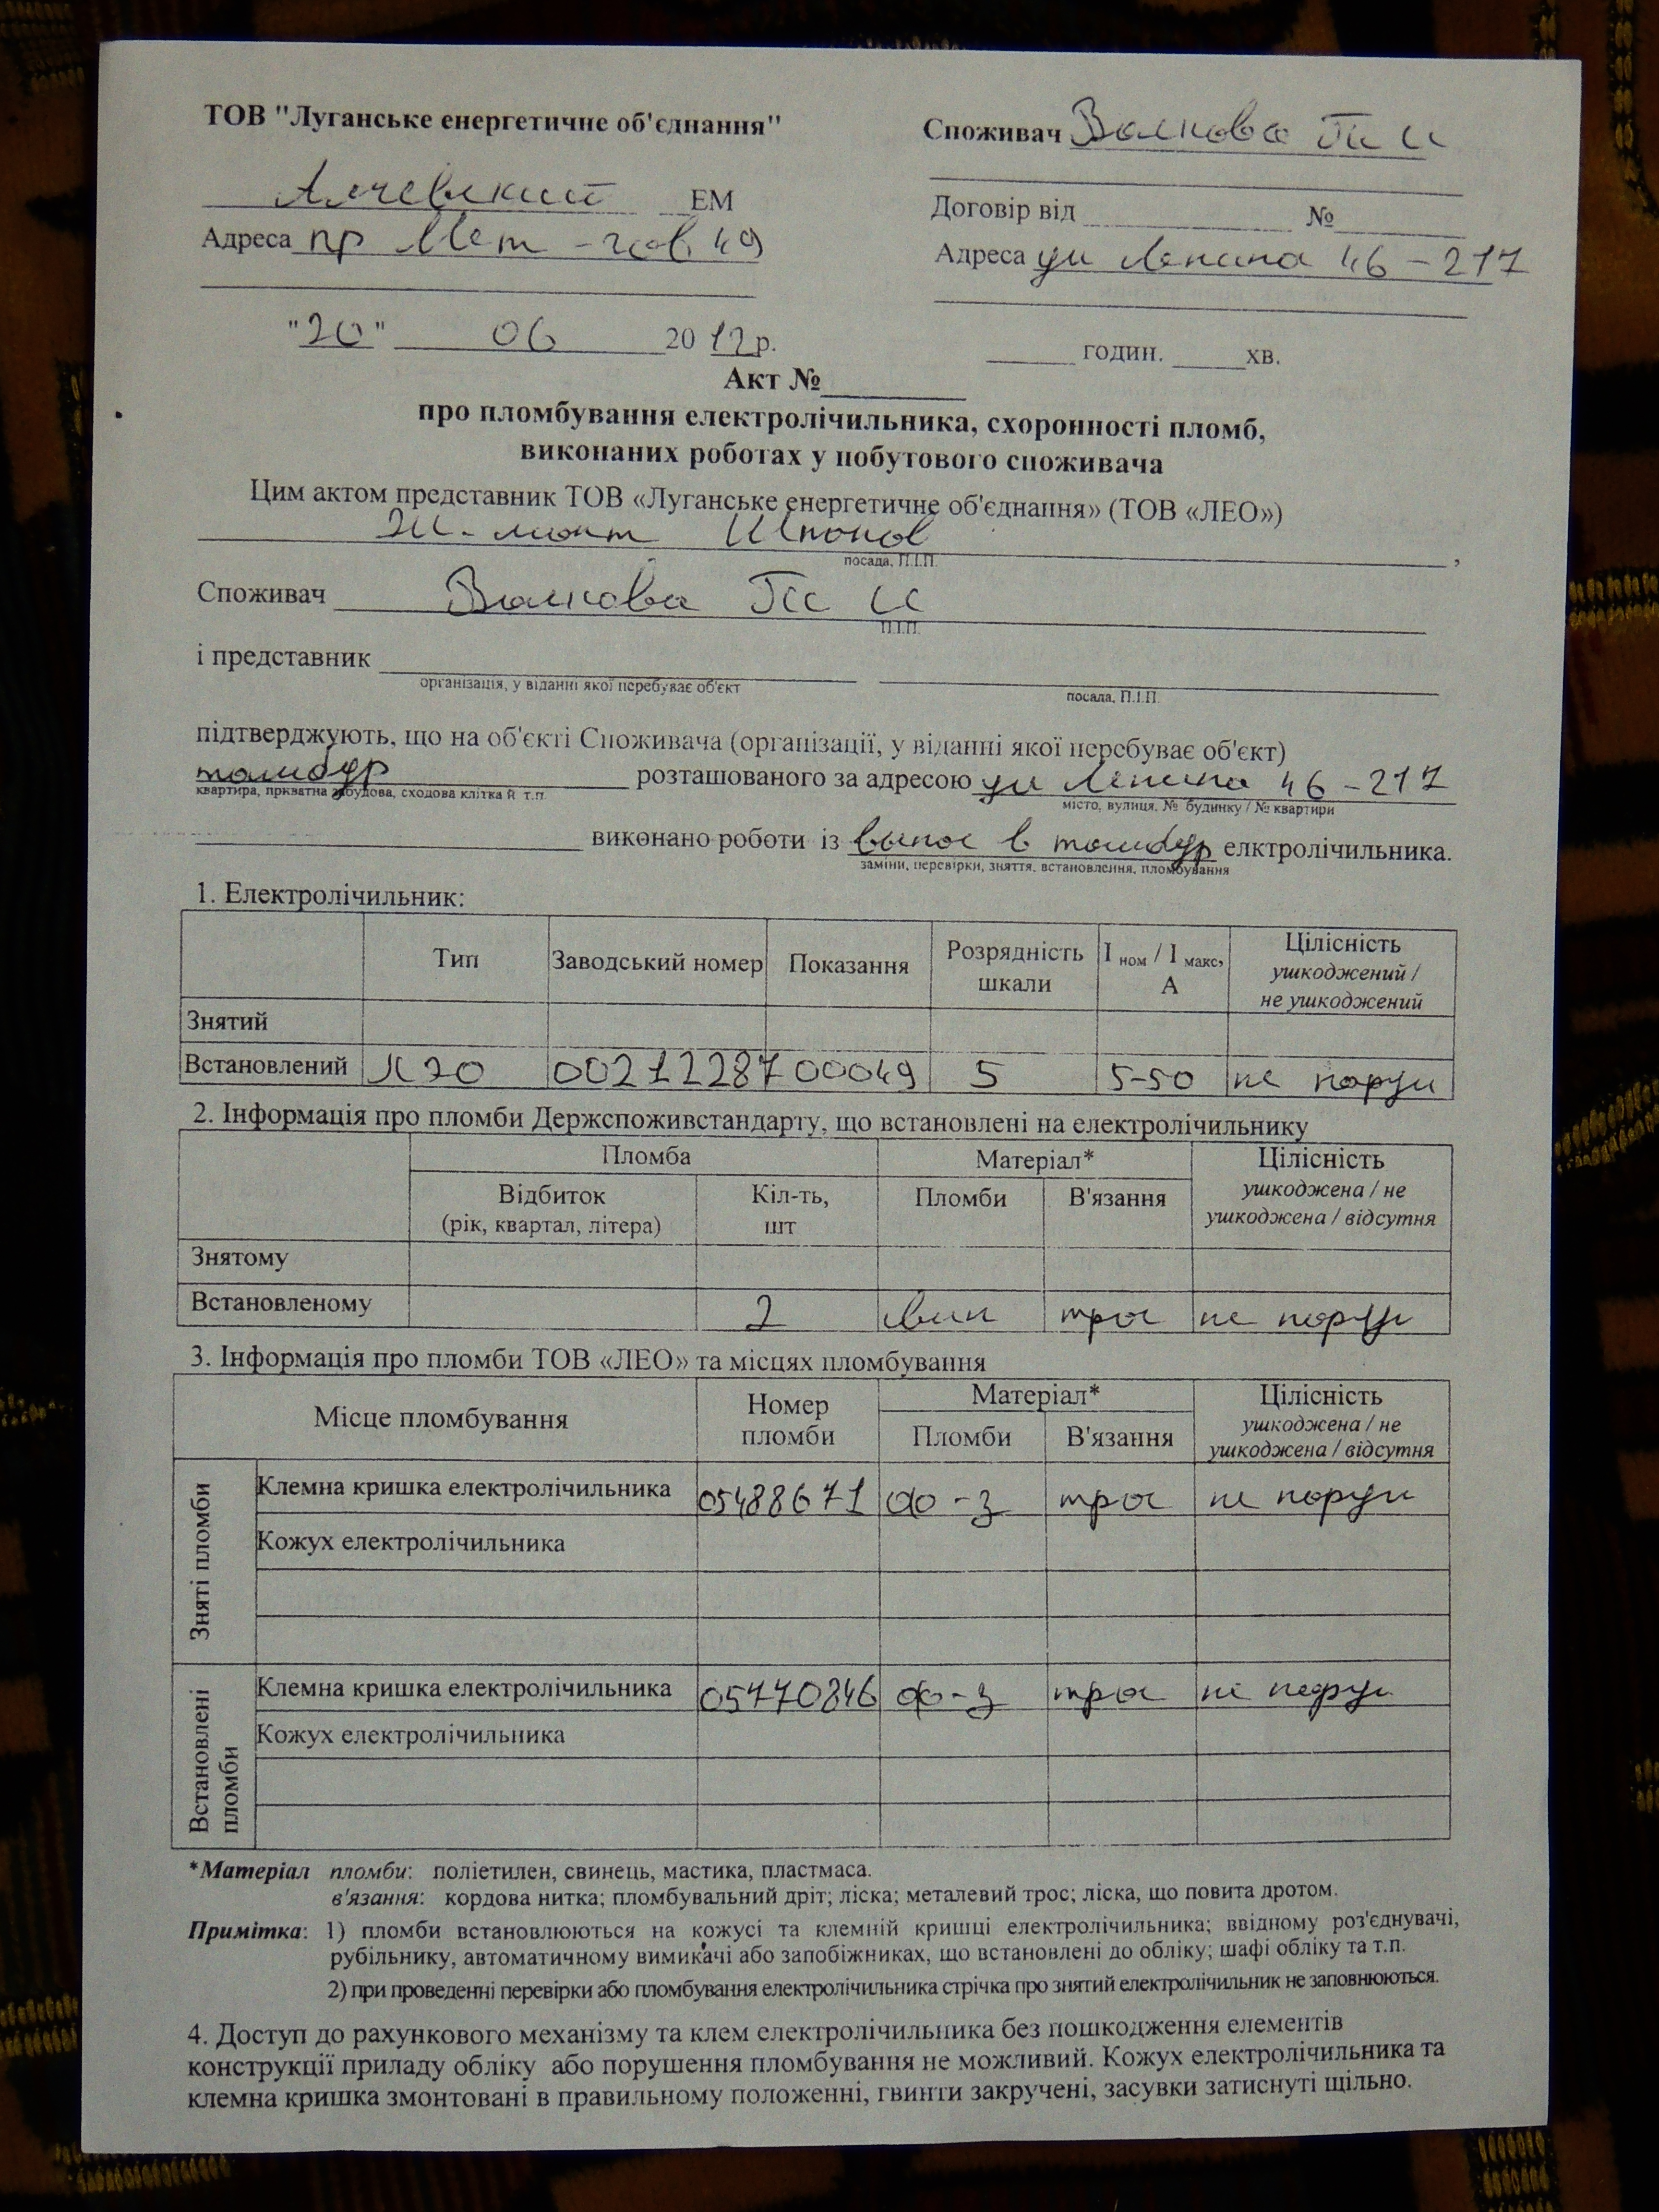 ТОВ "Луганське енергетичне об'єднання"
Споживач Волкова
Алчевский ЕМ
Договір від №
Адреса пр Мет-гов 49
Адреса ул Ленина 46-217
"20" 06 2012р.
годин. хв.
Акт №
про пломбування електролічильника, схоронності пломб,
виконаних роботах у побутового споживача
Цим актом представник ТОВ «Луганське енергетичне об'єднання» (ТОВ «ЛЕО»)
посада, П.І.П. ,
Споживач Волкова
П.І.П.
і представник
організація, у віданні якої перебуває об'єкт посада, П.І.П.
підтверджують, що на об'єкті Споживача (організації, у віданні якої перебуває об'єкт)
тамбур розташованого за адресою ул Ленина 46-217
квартира, пркватна забудова, сходова клітка й т.п. місто, вулиця, № будинку / № квартири
виконано роботи із вынос в тамбур елктролічильника.
заміни, перевірки, зняття, встановлення, пломбування
1. Електролічильник:
Тип Заводський номер Показання Розрядність шкали І ном / І макс, А Цілісність ушкоджений / не ушкоджений
Знятий
Встановлений 0021228700049 5 5-50 не поруш
2. Інформація про пломби Держспоживстандарту, що встановлені на електролічильнику
Пломба Матеріал* Цілісність
Відбиток (рік, квартал, літера) Кіл-ть, шт Пломби В'язання ушкоджена / не ушкоджена / відсутня
Знятому
Встановленому 2 свин трос не поруш
3. Інформація про пломби ТОВ «ЛЕО» та місцях пломбування
Місце пломбування Номер пломби Матеріал* Цілісність
Пломби В'язання ушкоджена / не ушкоджена / відсутня
Зняті пломби
Клемна кришка електролічильника 05488671 трос не поруш
Кожух електролічильника
Встановлені пломби
Клемна кришка електролічильника 05770846 трос не поруш
Кожух електролічильника
*Матеріал пломби: поліетилен, свинець, мастика, пластмаса.
в'язання: кордова нитка; пломбувальний дріт; ліска; металевий трос; ліска, що повита дротом.
Примітка: 1) пломби встановлюються на кожусі та клемній кришці електролічильника; ввідному роз'єднувачі,
рубільнику, автоматичному вимикачі або запобіжниках, що встановлені до обліку; шафі обліку та т.п.
2) при проведенні перевірки або пломбування електролічильника стрічка про знятий електролічильник не заповнюються.
4. Доступ до рахункового механізму та клем електролічильника без пошкодження елементів
конструкції приладу обліку або порушення пломбування не можливий. Кожух електролічильника та
клемна кришка змонтовані в правильному положенні, гвинти закручені, засувки затиснуті щільно.